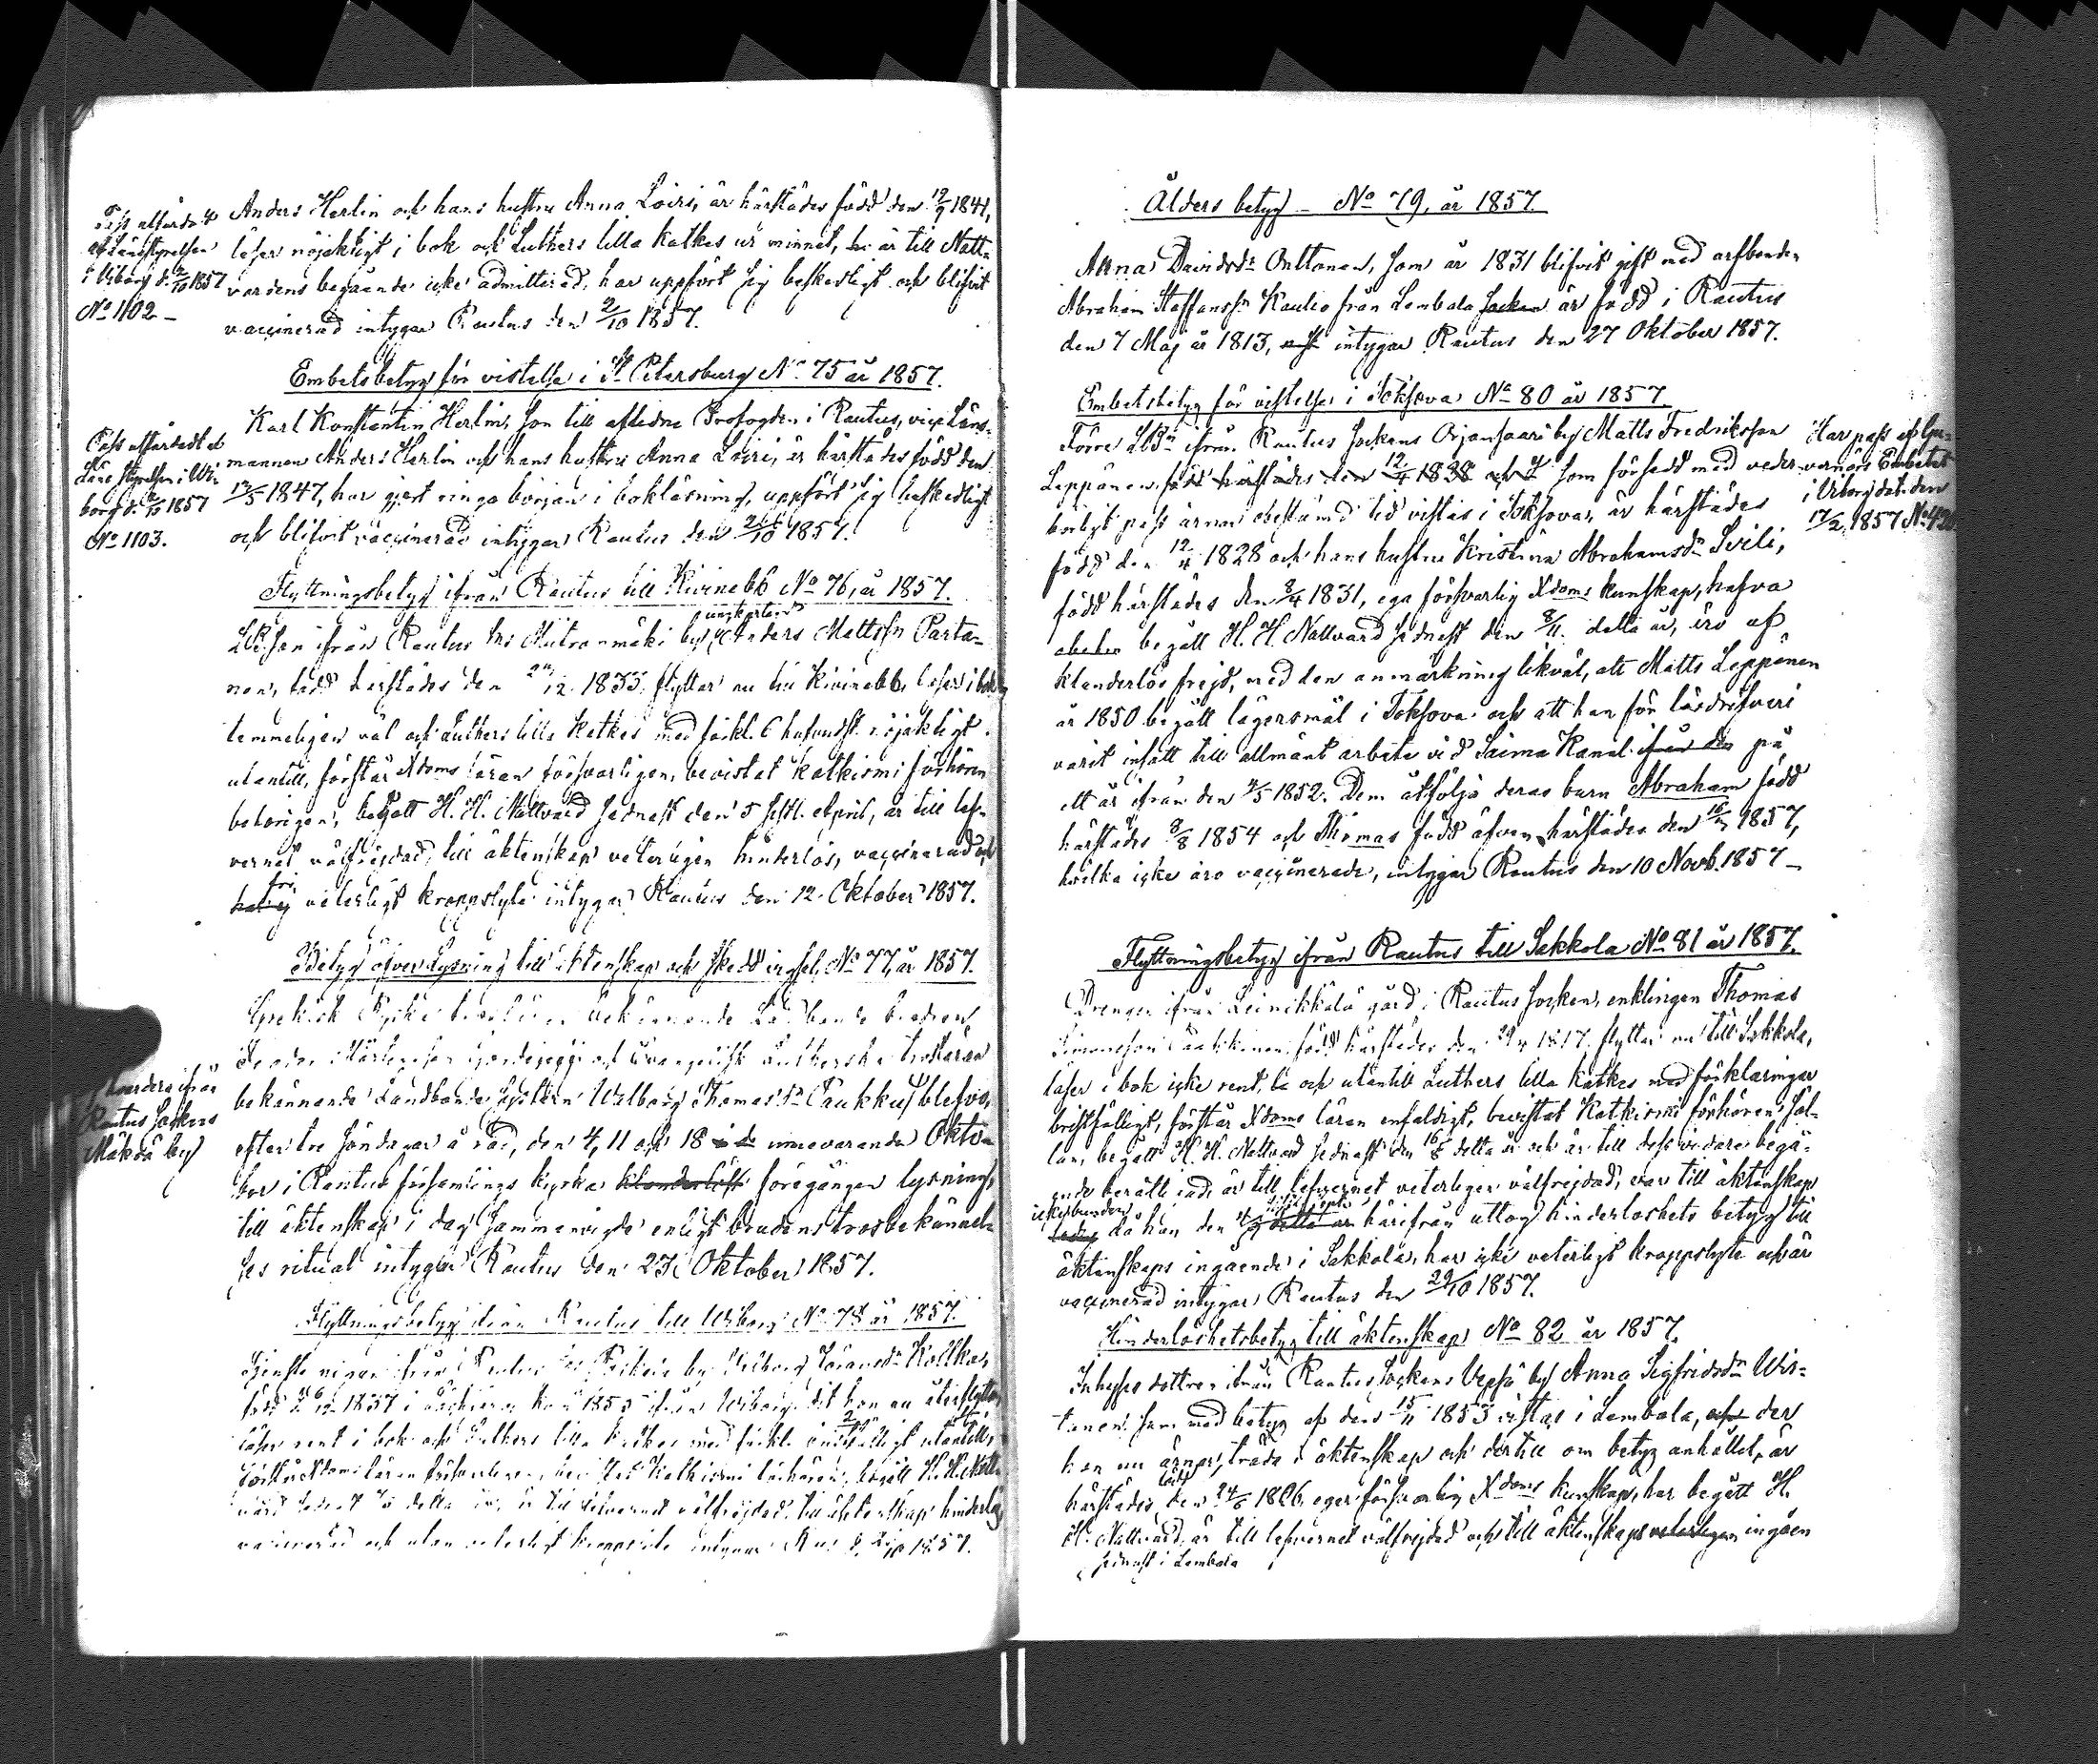 Pass utfärdadt
af Länestyrelsen
i Wiborg d. 2/10 1857
No 1102 –
Anders Herlin och hans hustru Anna Loiri, är härstädes född den 19/9 1841,
läser nöjaktigt i bok och Luthers lilla katkes ur minnet, är till Natt-
vardens begående icke admitterad, har uppfört sig beskedligt och blifvit
vaccinerad intygar Rautus den 2/10 1857.
Embetsbetyg för vistelse i St Petersburg No 75 år 1857.
Pass utfärdadt af
Länestyrelsen i Wi-
borg d. 2/10 1857
No 1103.
Karl Konstantin Herlin, son till aflidne Brofogden i Rautus, vice Läns-
mannen Anders Herlin och hans hustru Anna Loiri, är härstädes född den
1847, har gjort ringa början i bokläsning, uppfört sig beskedligt
och blifvit vaccinerad intygar Rautus den 2/10 1857.
Flyttningsbetyg ifrån Rautus till Kivinebb No 76, år 1857.
ungkarlen
LBson ifrån Rautus Sns by, Anders Mattssn Parta-
nen, född härstädes den 1833, flyttar nu till Kivinebb, läser i bok
temmeligen väl och Luthers lilla Katkes med förkl. nöjaktligt
utantill, förstår Xdoms läran försvarligen, bevistat katkismi förhören
behörigen, begått H. H. Nattvard sednast den 5 sistl. April, är till lef-
vernet välfrejdad, till äktenskap veterligen hinderlös, vaccinerad och
fri
har ej veterligt kroppslyte intygar Rautus den 12 Oktober 1857.
Betyg öfver Lysning till äktenskap och skedd vigsel, No 77, år 1857.
hvardera ifrån
Rautus Sockens
Mäkrä by
Grekisk Ryska bekännande
och Evangelisk Lutherska trosläran
bekännande Landbonde Systern Walborg Thomasdr Paukku, blefvo,
efter tre söndagar å rad, den 4, 11 och 18 innevarande Okto-
ber i Rautus församlings kyrka klanderlöst föregången lysning,
till äktenskap i dag sammanvigde enligt brudens trosbekännel-
ses ritual intygar Rautus den 27 Oktober 1857.
Flyttningsbetyg ifrån Rautus till Wiborg No 78 år 1857.
Tjenste pigan ifrån Rautus by Walborg Kollka,
född 1837 i 1855 ifrån Wiborg dit hon nu återflyttar,
läser rent i bok och Luthers lilla Katkes med förkl. utantill,
förstår Xdoms läran försvarligen, bevistat Katkismi förhören, begått H. H. Natt-
vard sednast detta år, är till lefvernet välfrejdad, till äktenskap hinderlös
vaccinerad och utan veterligt kroppslyte intygar Rautus 1857.
Ålders betyg – No 79, år 1857.
Anna Davidsdr Onttonen, som år 1831 blifvit gift med arfbonden
Abraham Staffanssn Kaulio från Lembala Socken är född i Rautus
den 7 Maj år 1813, intygar Rautus den 27 Oktober 1857.
Embetsbetyg för vistelse i Toksova No 80 år 1857.
Har pass af Gu-
vernörs Embetet
i Wiborg dat. den
17/2 1857 No
Förre LBn ifrån Rautus Sockens Orjansaari by Matts Fredriksson
Leppänen, född härstädes den 12/4 1838 som försedd med veder-
börligt pass ärnar obestämd tid vistas i Toksova, är härstädes
född den 12/4 1828 och hans hustru Kristina Abrahamsdr Svili,
född härstädes den 8/4 1831, ega försvarlig Xdoms kunskap, hafva
begått H. H. Nattvard sednast den 8/11 detta år, äro af
klanderlös frejd, med den anmärkning likväl, att Matts Leppänen
år 1850 begått lägersmål i Toksova och att han för lösdrifveri
varit insatt till allmänt arbete vid Saima Kanal ifrån den på
ett år ifrån den 4/5 1852. Dem åtfölja deras barn Abraham född
härstädes 8/8 1854 och Thomas född äfven härstädes den 1857,
hvilka icke äro vaccinerade, intygar Rautus den 10 Novb. 1857 –
Flyttningsbetyg ifrån Rautus till Sakkola No 81 år 1857.
Drengen ifrån Leinikkälä gård i Rautus Socken, enklingen Thomas
Simonsson Läätikinen född härstädes den 1817, flyttar nu till Sakkola,
läser i bok icke rent, och utantill Luthers lilla katkes med förklaringar
bristfälligt, förstår Xdoms läran enfaldigt, bevistat Katkismi förhören säl-
lan, begått H. H. Nattvard sednast den detta år och är till dess vidare begå-
ende berättigad, är till lefvernet veterligen välfrejdad, var till äktenskap
icke bunden
ledig då han den detta år härifrån uttog hinderlöshets betyg till
äktenskaps ingående i Sakkola, har icke veterligt kroppslyte och är
vaccinerad intygar Rautus den 29/10 1857.
Hinderlöshetsbetyg till äktenskap No 82 år 1857.
Inhyses dottren ifrån Rautus Sockens Vepsä by Anna Sigfridsdr Wis-
tanen som med betyg af den 15/11 1853 vistas i Lembala, och der
hon nu ärnar träda i äktenskap och dertill om betyg anhållit, är
född
härstädes den 24/6 1826, eger försvarlig Xdoms kunskap, har begått H.
H. Nattvard, är till lefvernet välfrejdad och till äktenskaps veterligen ingåen
sednast i Lembala